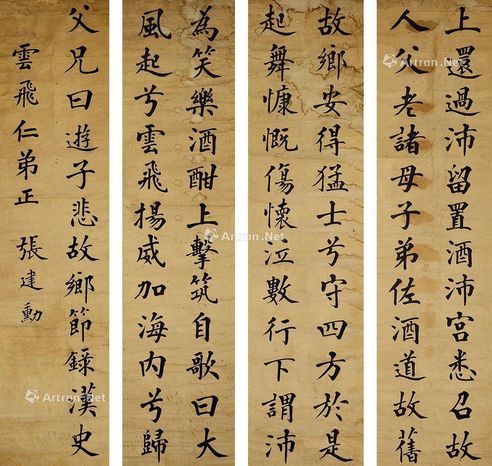 上還過沛留置酒沛宮悉召故
人父老諸母子弟佐酒道故舊
為笑樂酒酣上擊筑自歌曰大
風起兮雲飛揚威加海內兮歸
故鄉安得猛士兮守四方於是
起舞慷慨傷懷泣數行下謂沛
父兄曰遊子悲故鄉節錄漢史
雲飛仁弟正 張建勳
Artron.Net
Artron.Net
Artron.Net
Artron.Net
Artron.Net